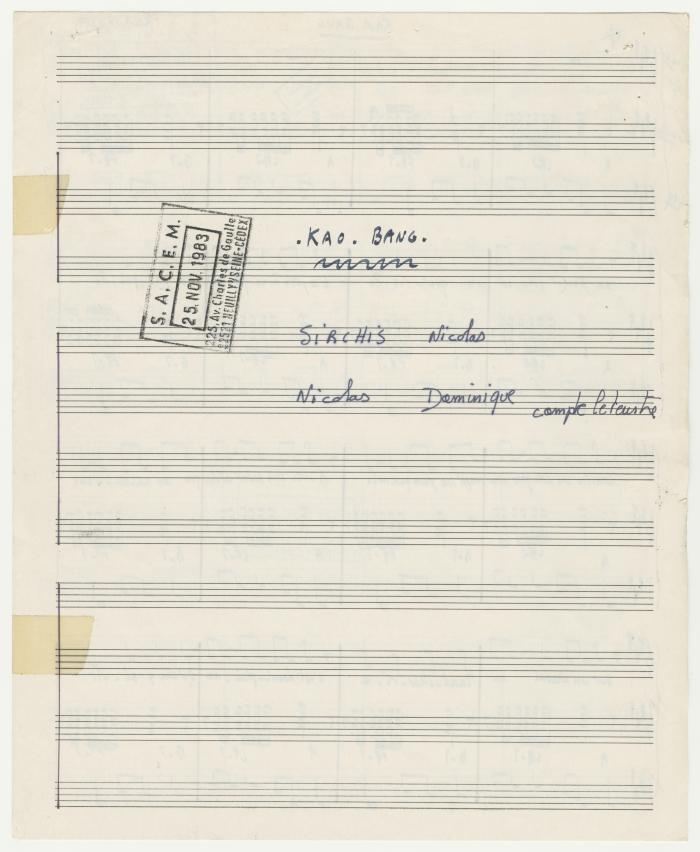 .KAO. BANG.
S. A. C. E. M.
25. NOV. 1983
225, Av. Charles de Gaulle
92521 NEUILLY s/SEINE-CEDEX
SiRCHiS Nicolas
Nicolas Dominique